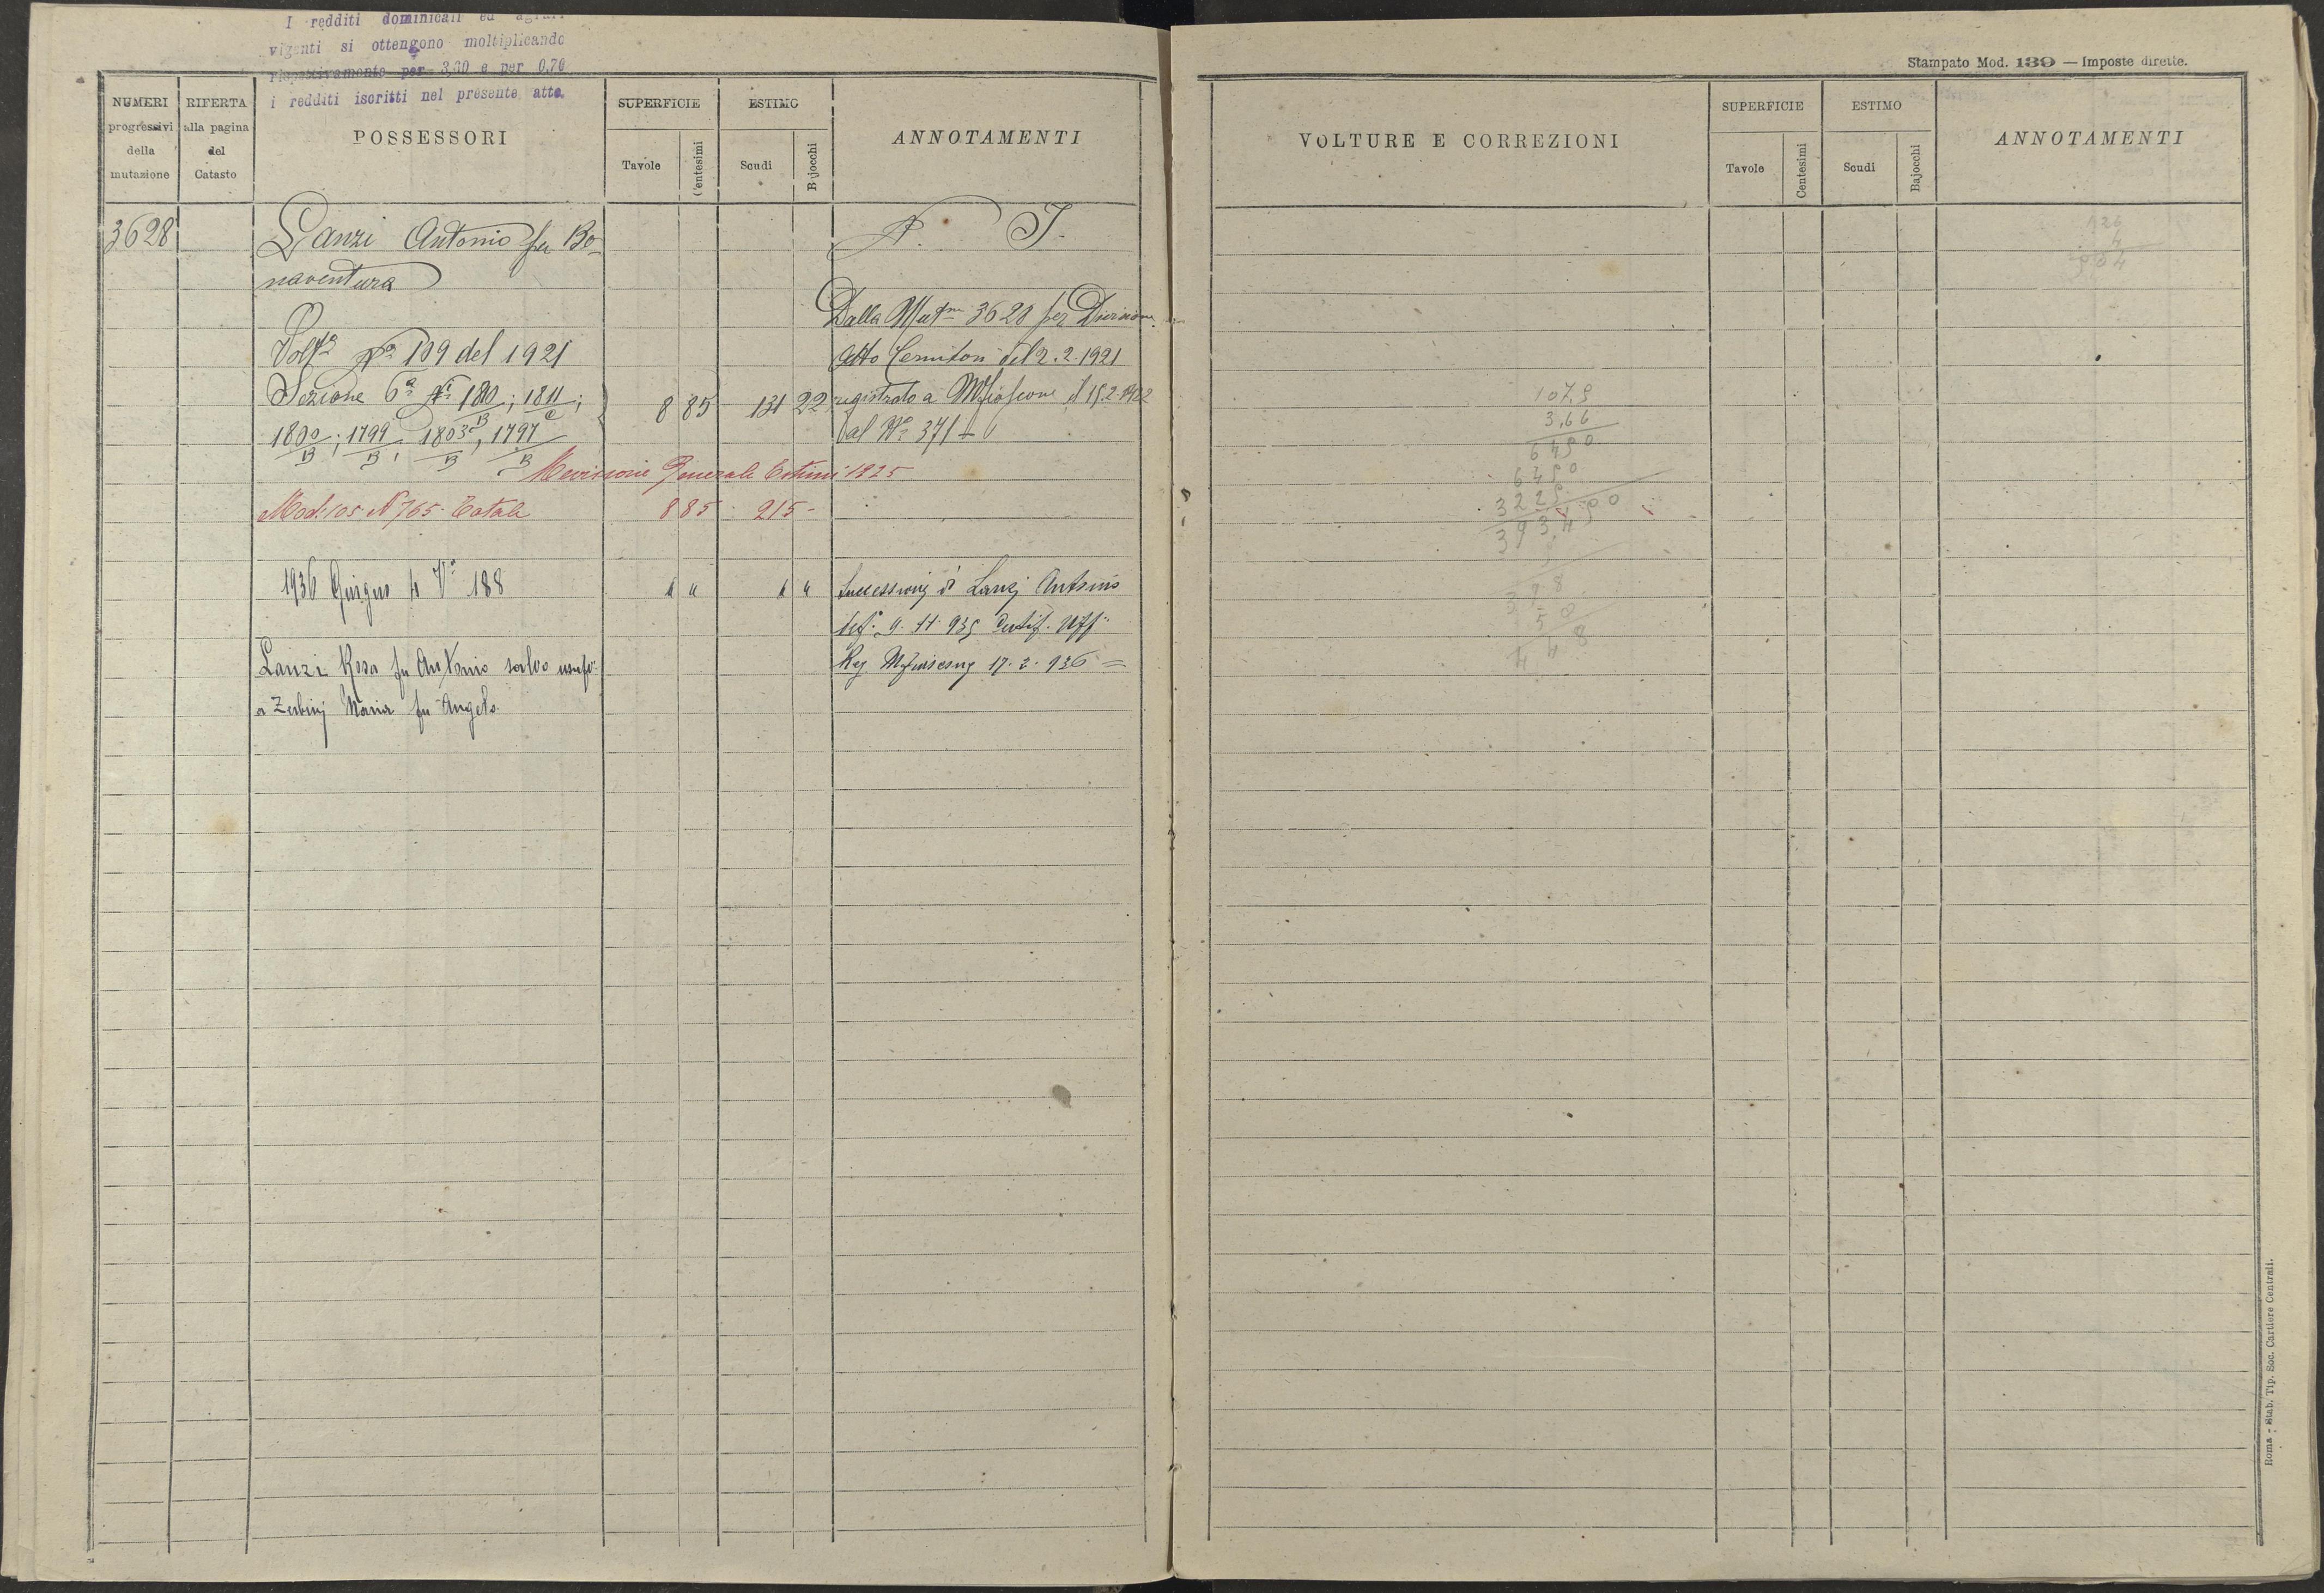 I redditi dominicali ed agrari
vigenti si ottengono moltiplicando
rispettivamente per 3,30 e per 0,70
i redditi iscritti nel presente atto.
NUMERI progressivi della mutazione
RIFERTA alla pagina del Catasto
POSSESSORI
SUPERFICIE
Tavole
Centesimi
ESTIMO
Scudi
Bajocchi
ANNOTAMENTI
3628
Lanzi Antonio fu Bo-
naventura
N. I.
Dalla Mut.ne 3628 per Divisione
Volt.a N.o 109 del 1921
Atto del 2.2.1921
Sezione 6a Ni 180/B; 1811/C;
8 85 131 22
registrato a Mfiascone il 15.2.1922
1800/B; 1799/B; 1803/B; 1797/B
al No 371
Revisione Generale Estimi 1925
Mod. 105 N 765 Totale 885 215 -
1936 Giugno 4 Va 188
" " " "
Successione di Lanzi Antonio
9. 11. 935 Certif. Uff.
Lanzi Rosa fu Antonio salvo usufo
Reg. Mfiascone 17. 2. 936 =
a Zerbini Maria fu Angelo.
Stampato Mod. 139 — Imposte dirette.
VOLTURE E CORREZIONI
SUPERFICIE
Tavole
Centesimi
ESTIMO
Scudi
Bajocchi
ANNOTAMENTI
1075
3,66
6450
6450
3225
3934 50
Roma - Stab. Tip. Soc. Cartiere Centrali.